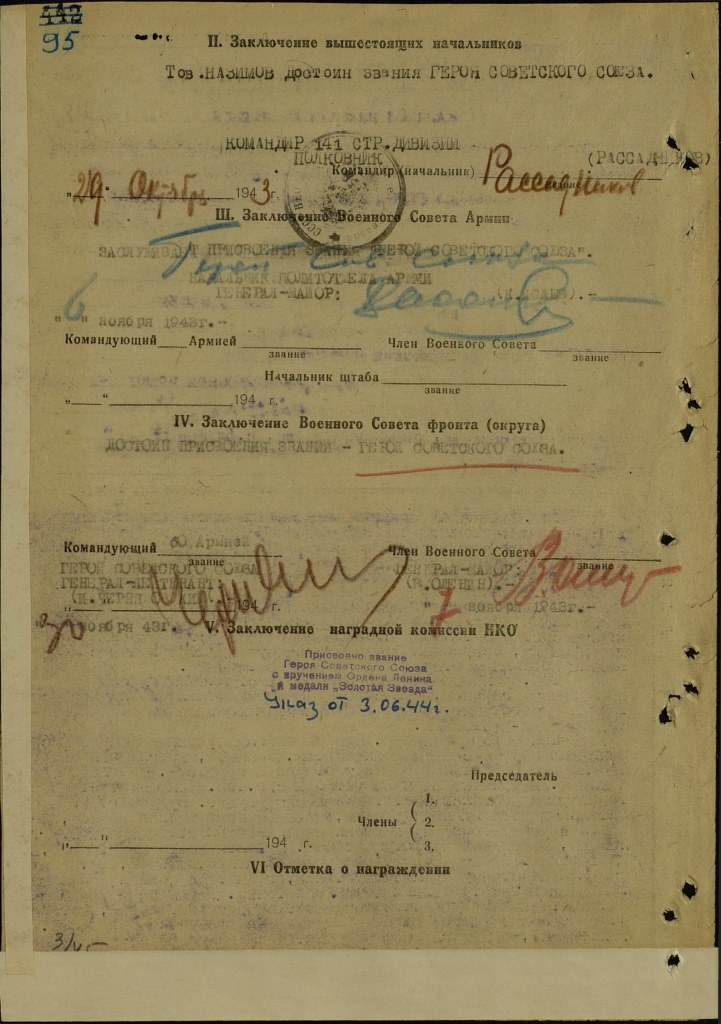 112
95
II. Заключение вышестоящих начальников
Тов.НАЗИМОВ достоин звания ГЕРОЯ СОВЕТСКОГО СОЮЗА.
КОМАНДИР 141 СТР.ДИВИЗИИ
ПОЛКОВНИК
Командир (начальник) Рассадников (РАССАДНИКОВ)
"29" Октябрь 1943г.
III. Заключение Военного Совета Армии
ЗАСЛУЖИВАЕТ ПРИСВОЕНИЯ ЗВАНИЯ "ГЕРОЙ СОВЕТСКОГО СОЮЗА".
Герой Сов. Союза
НАЧАЛЬНИК ПОЛИТОТДЕЛА АРМИИ
ГЕНЕРАЛ-МАЙОР: (К.ИСАЕВ).-
"6" ноября 1943г.-
Командующий Армией Член Военного Совета
звание звание
Начальник штаба
звание
" " 194 г.
IV. Заключение Военного Совета фронта (округа)
ДОСТОИН ПРИСВОЕНИЯ ЗВАНИЯ - ГЕРОЙ СОВЕТСКОГО СОЮЗА.
Командующий 60 Армией Член Военного Совета
звание звание
ГЕРОЙ СОВЕТСКОГО СОЮЗА ГЕНЕРАЛ-МАЙОР:
ГЕНЕРАЛ-ЛЕЙТЕНАНТ (В.ОЛЕНИН).-
(И.ЧЕРНЯХОВСКИЙ)
" " 194 г. " 7 ноября 1943г.-
ноября 43г.
V. Заключение наградной комиссии НКО
Присвоено звание
Героя Советского Союза
с вручением Ордена Ленина
и медали „Золотая Звезда“
Указ от 3.06.44г.
Председатель
1.
Члены 2.
3.
" " 194 г.
VI Отметка о награждении